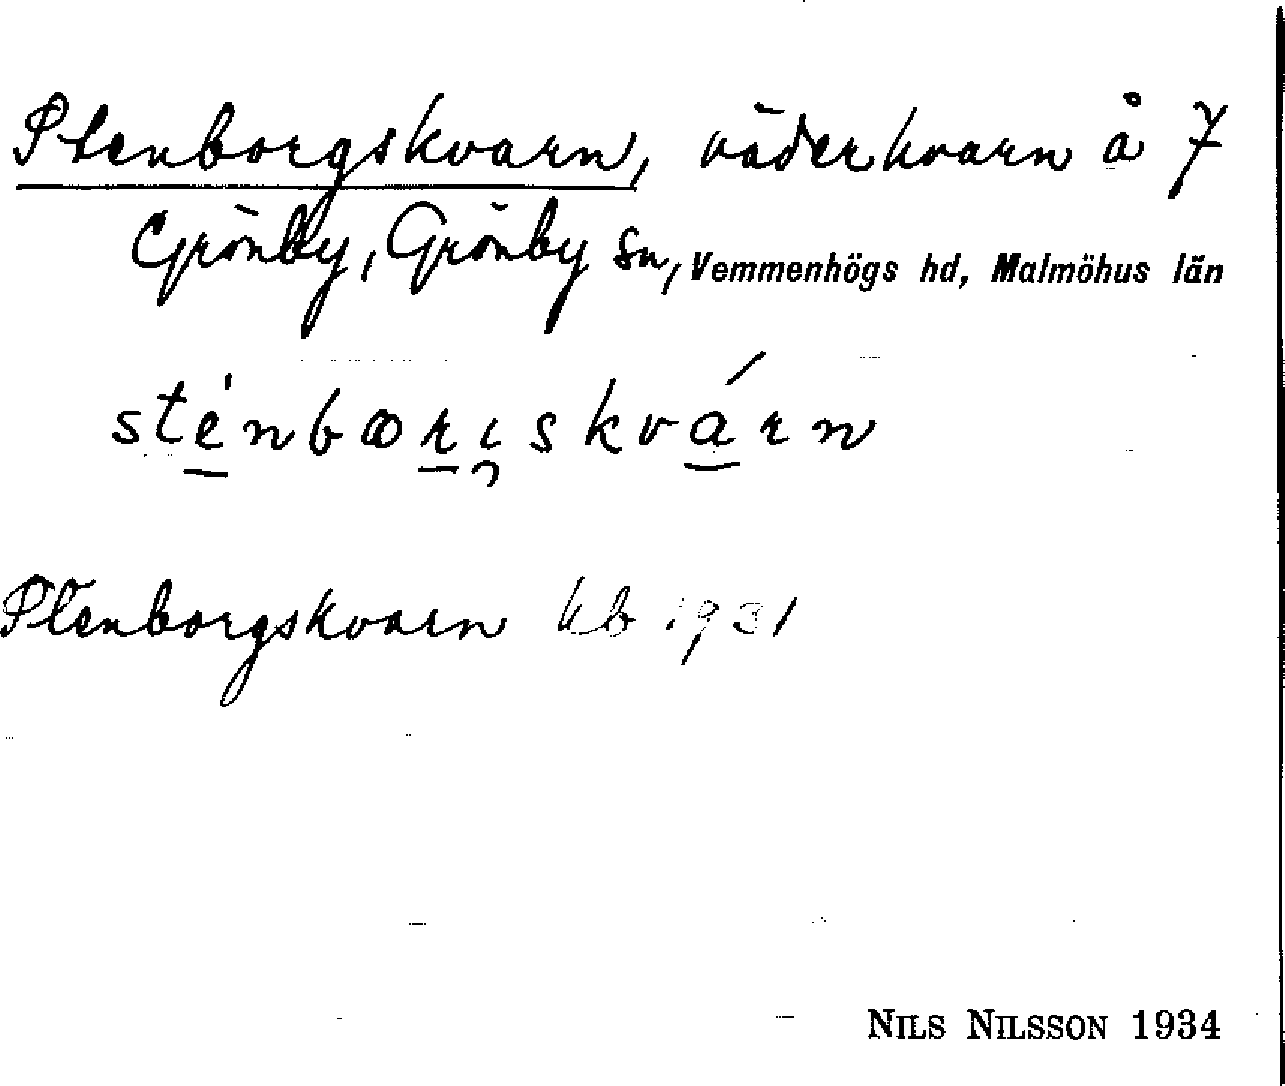 Stenborgskvarn, väderkvarn å 7
Grönby, Grönby sn, Vemmenhögs hd, Malmöhus län
sténbꝏrı̯skvárn
Stenborgskvarn kb 1931
NILS NILSSON 1934